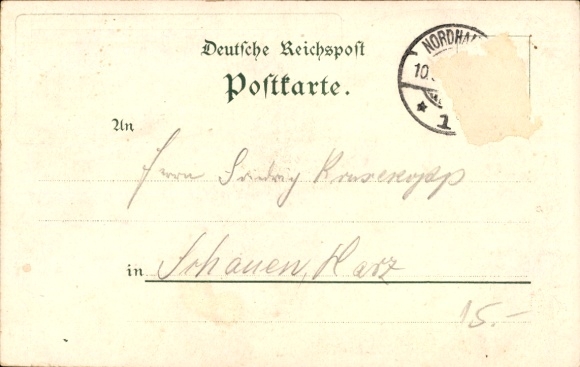 Deutsche Reichspost
Postkarte.
NORDHA
10.
* 1
An
Herrn Friedrich Krusekopp
in Schauen, Harz
15.-